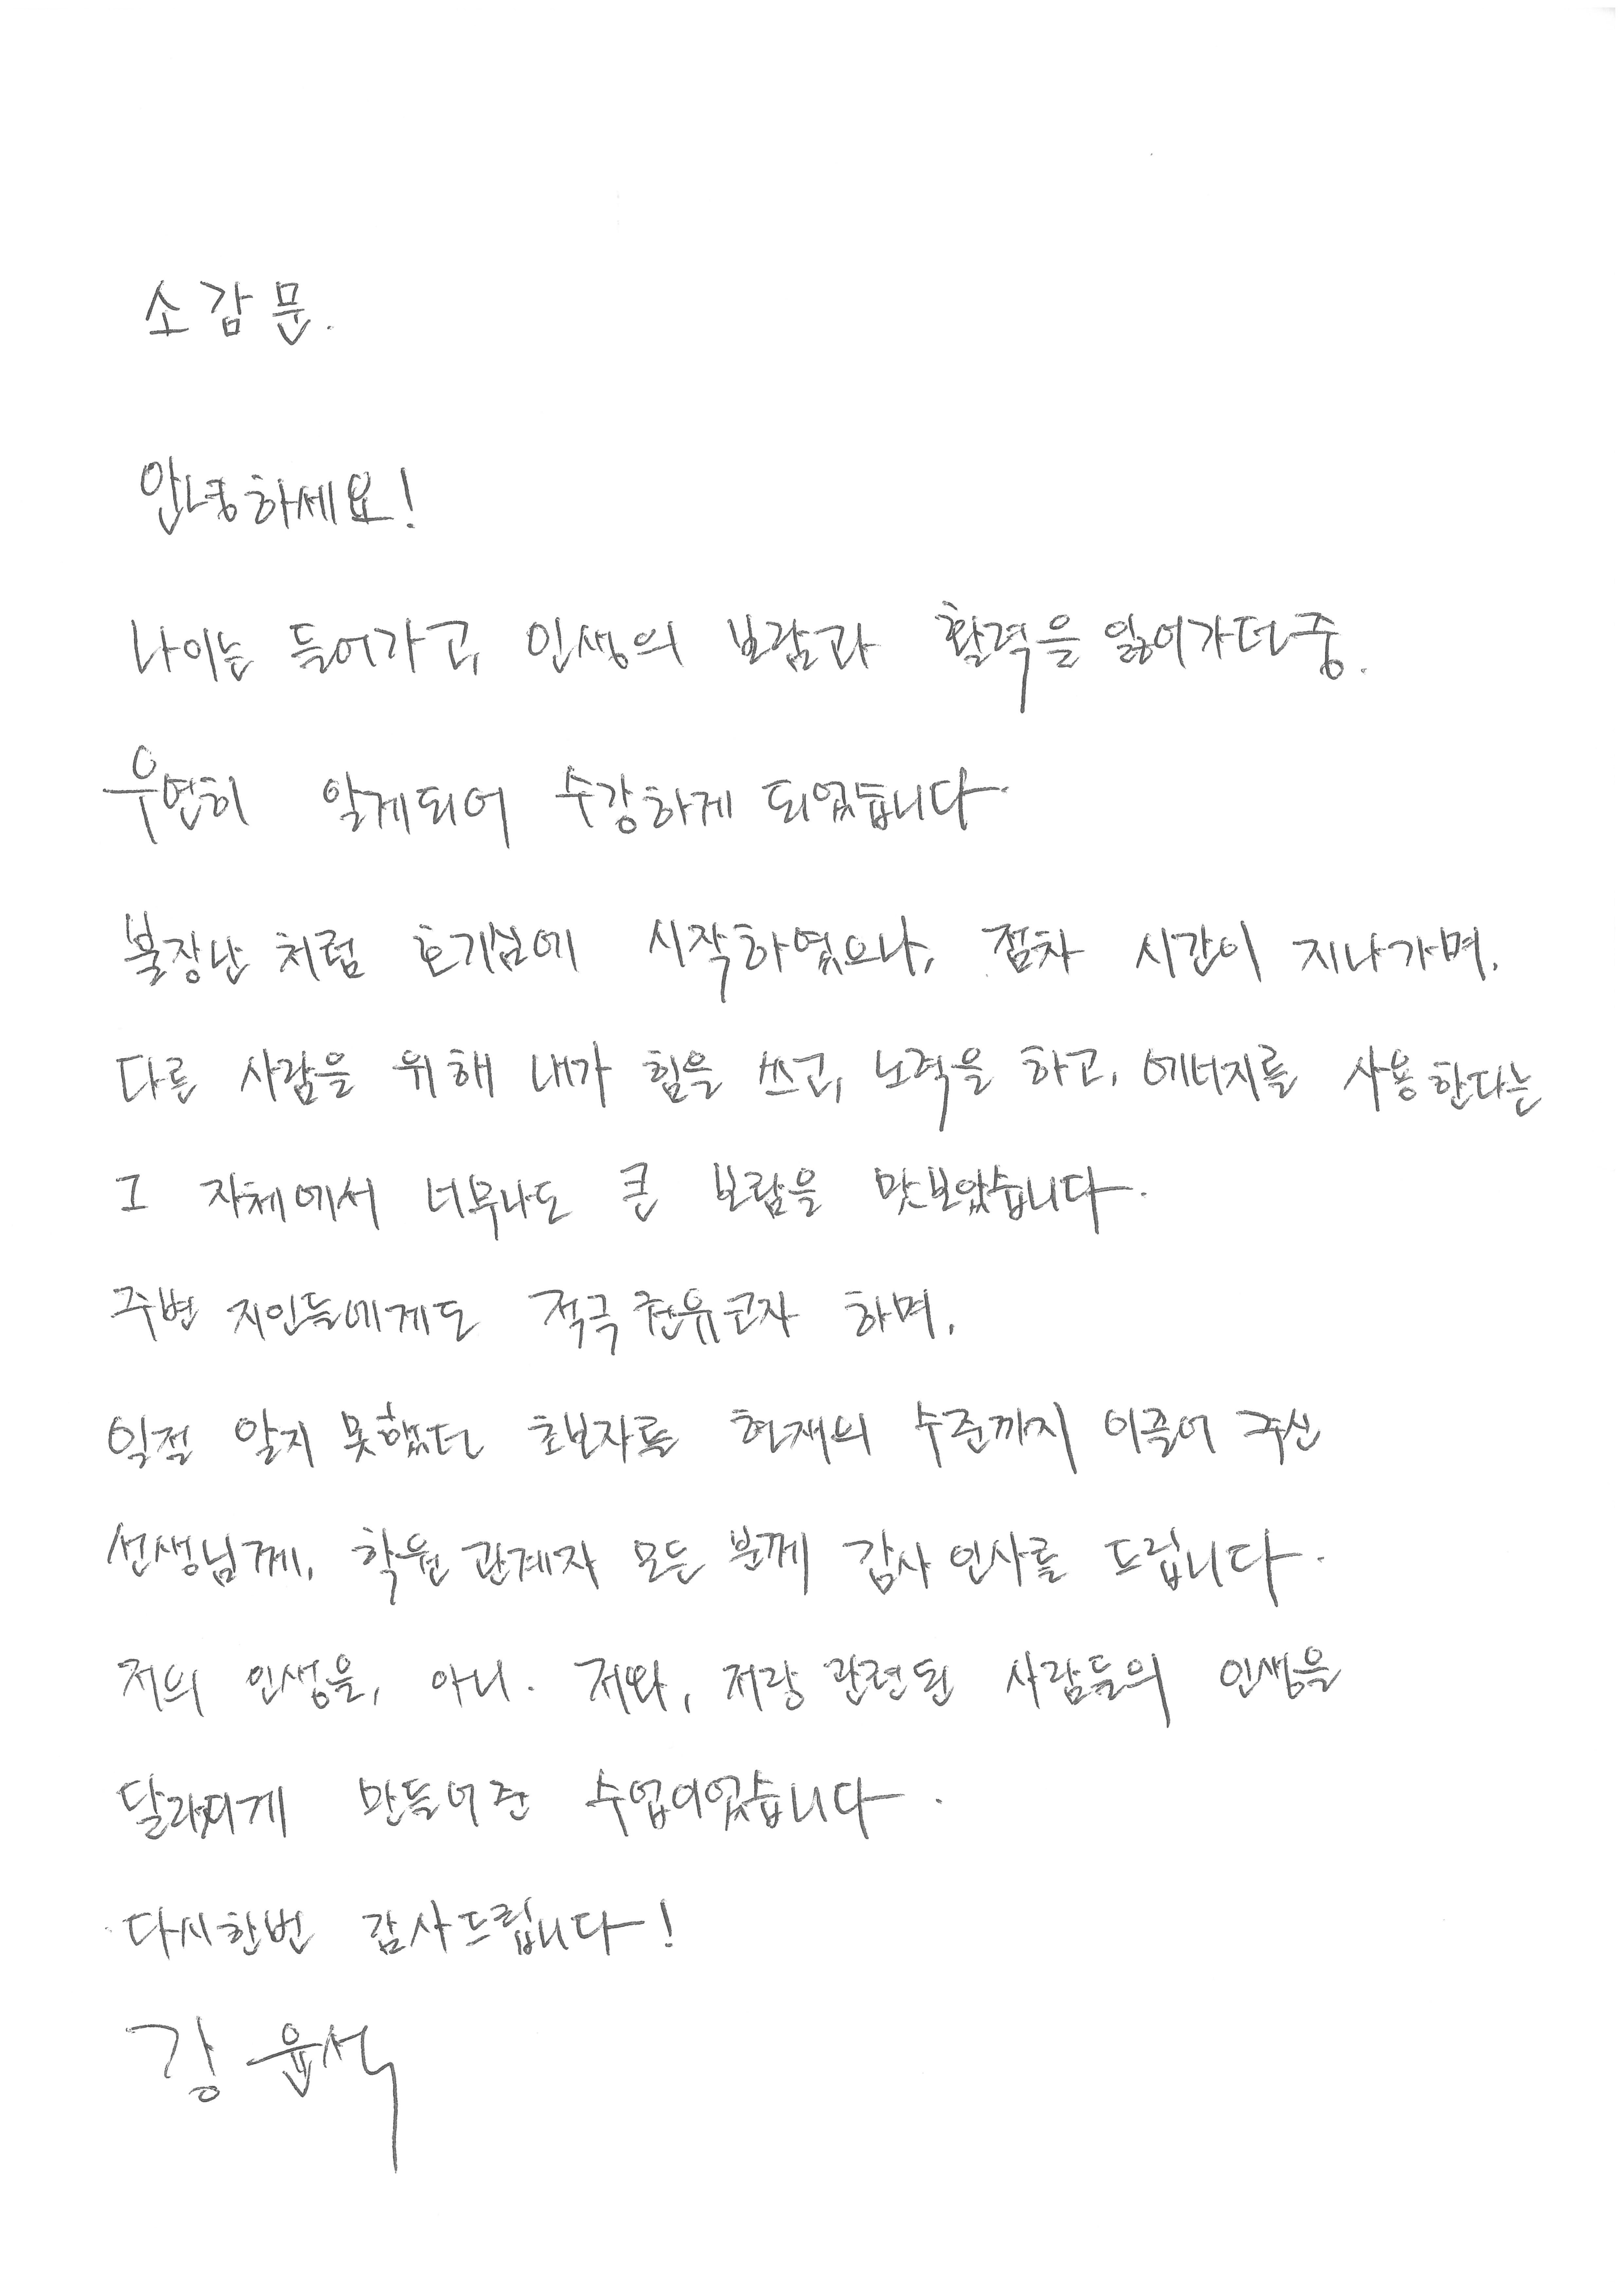 소감문.
안녕하세요!
나이는 들어가고, 인생의 보람과 활력을 잃어가던중.
우연히 알게되어 수강하게 되었습니다.
불장난 처럼 호기심에 시작하였으나, 점차 시간이 지나가며,
다른 사람을 위해 내가 힘을 쓰고, 노력을 하고, 에너지를 사용한다는
그 자체에서 너무나도 큰 보람을 맛보았습니다.
주변 지인들에게도 적극 권유코자 하며,
일절 알지 못했던 초보자를 현재의 수준까지 이끌어 주신
선생님께, 학원 관계자 모든 분께 감사 인사를 드립니다.
저의 인생을, 아니. 저와, 저랑 관련된 사람들의 인생을
달라지게 만들어준 수업이었습니다.
다시한번 감사드립니다!
강윤석